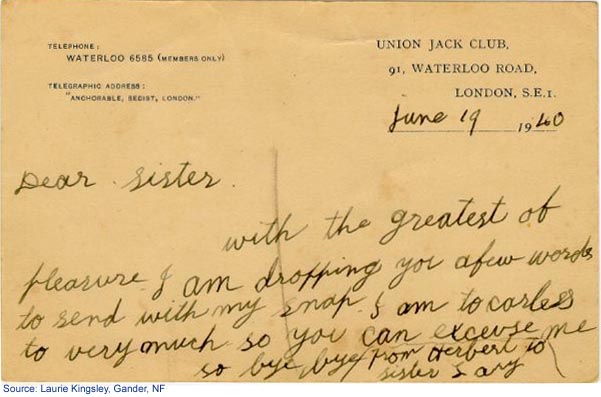 TELEPHONE:
WATERLOO 6585 (MEMBERS ONLY)
TELEGRAPHIC ADDRESS:
"ANCHORABLE, SEDIST, LONDON."
UNION JACK CLUB,
91, WATERLOO ROAD,
LONDON, S.E.1.
June 19 1940
Dear sister.
with the greatest of
pleasure I am dropping you afew words
to send with my snap. I am to carless
to very much so you can excuse me
so bye bye from Herbert to
sister
Source: Laurie Kingsley, Gander, NF